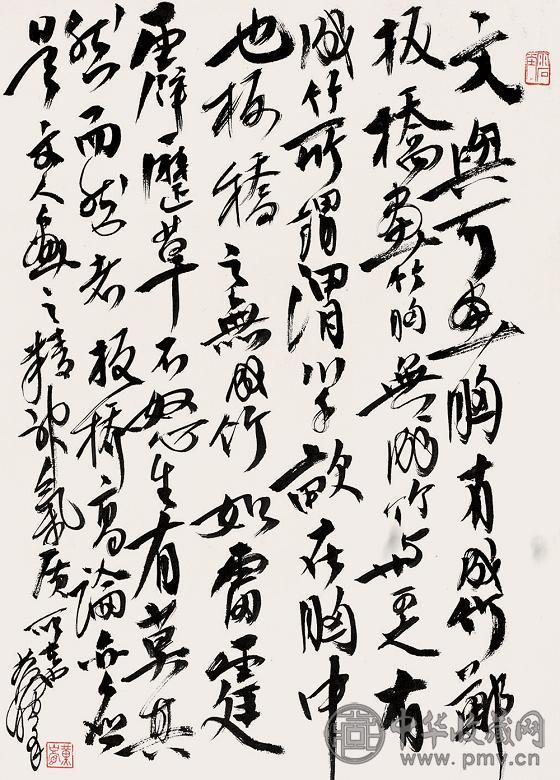 文與可畫胸有成竹鄭
板橋畫竹胸無成竹与可之有
成竹所謂渭川千畝在胸中
也板橋之無成竹如雷霆
霹靂草木怒生有莫其
然而然者板橋高論亦
是文人畫之精神氣質所
中华收藏网
www.pmv.cn